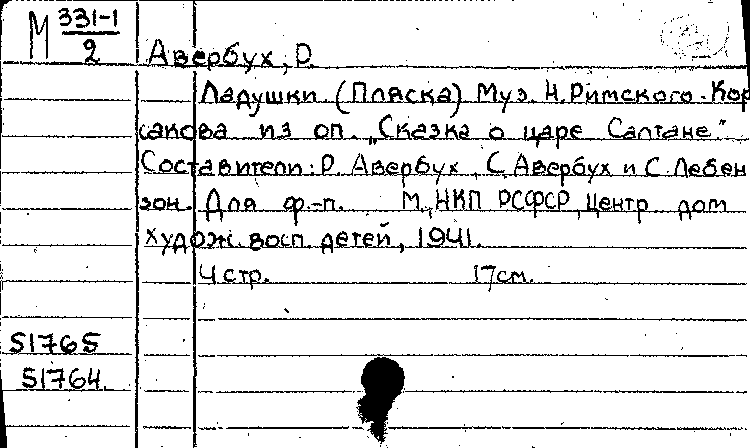 М 331-1
2
Авербух, Р.
Ладушки. (Пляска) Муз. Н. Римского-Кор
сакова из оп. „Сказка о царе Салтане."
Составители: Р. Авербух, С. Авербух и С. Лебен
зон. Для ф.-п. М., НКП РСФСР, Центр. дом
худож. восп. детей, 1941.
4 стр. 17 см.
51765
51764.